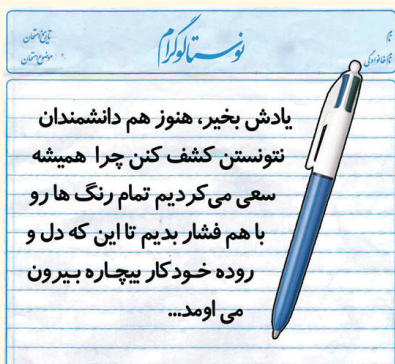 نام
نام خانوادگی
نوستالوگرام
تاریخ امتحان
موضوع امتحان
یادش بخیر، هنوز هم دانشمندان
نتونستن کشف کنن چرا همیشه
سعی می‌کردیم تمام رنگ ها رو
با هم فشار بدیم تا این که دل و
روده خودکار بیچاره بیرون
می اومد...